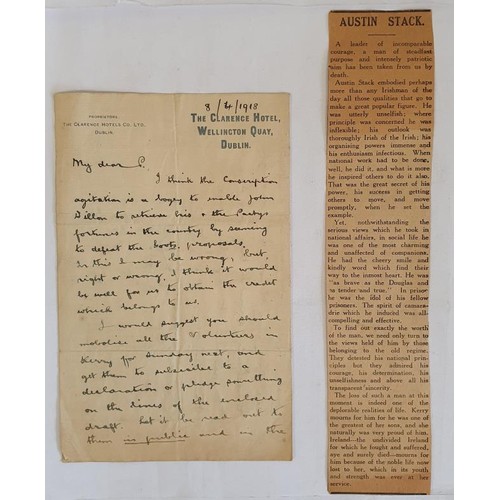 8/4/1918
PROPRIETORS
THE CLARENCE HOTELS CO. LTD.
DUBLIN.
THE CLARENCE HOTEL,
WELLINGTON QUAY,
DUBLIN.
My dear P.
I think the Conscription
agitation is a bogey to enable John
Dillon to retrieve his & the Partys
fortunes in the country by seeming
to defeat the Govts. proposals.
In this I may be wrong, but,
right or wrong, I think it would
be well for us to obtain the credit
which belongs to us.
I would suggest you should
mobolise all the Volunteers in
Kerry for Sunday next, and
get them to subscribe to a
declaration or pledge something
on the lines of the enclosed
draft. Let it be read out to
them in public and in the
AUSTIN STACK.
A leader of incomparable
courage, a man of steadfast
purpose and intensely patriotic
aim has been taken from us by
death.
Austin Stack embodied perhaps
more than any Irishman of the
day all those qualities that go to
make a great popular figure. He
was utterly unselfish; where
principle was concerned he was
inflexible; his outlook was
thoroughly Irish of the Irish; his
organising powers immense and
his enthusiasm infectious. When
national work had to be done,
well, he did it, and what is more
he inspired others to do it also.
That was the great secret of his
power, his success in getting
others to move, and move
promptly, when he set the
example.
Yet, notwithstanding the
serious views which he took in
national affairs, in social life he
was one of the most charming
and unaffected of companions.
He had the cheery smile and
kindly word which find their
way to the inmost heart. He was
"as brave as the Douglas and
as tender and true." In prison
he was the idol of his fellow
prisoners. The spirit of camara-
derie which he induced was all-
compelling and effective.
To find out exactly the worth
of the man, we need only turn to
the views held of him by those
belonging to the old regime.
They detested his national prin-
ciples but they admired him
his courage, his determination, his
unselfishness and above all his
transparent sincerity.
The loss of such a man at this
moment is indeed one of the
deplorable realities of life. Kerry
mourns for him for he was one
of the greatest of her sons, and she
naturally was very proud of him.
Ireland—the undivided Ireland
for which he fought and suffered,
aye and surely died—mourns for
him because of the noble life now
lost to her, which in its youth
and strength was ever at her
service.